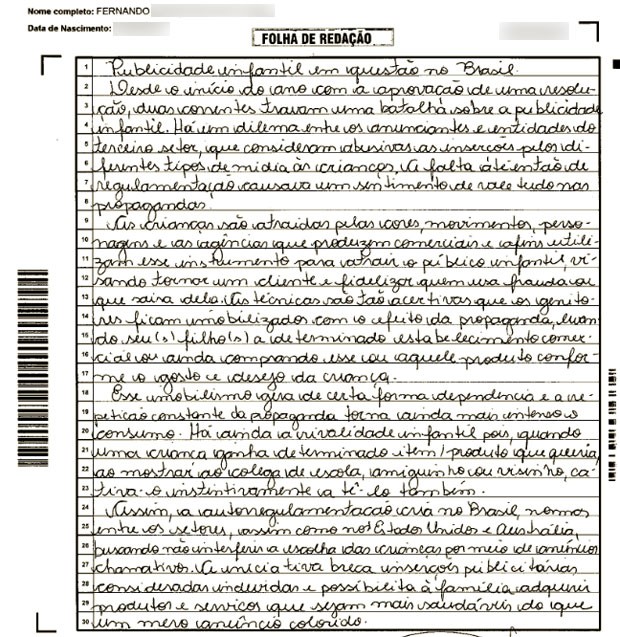 Nome completo: FERNANDO
Data de Nascimento:
FOLHA DE REDAÇÃO
1 Publicidade infantil em questão no Brasil.
2 Desde o início do ano com a aprovação de uma resolu-
3 ção, duas correntes travam uma batalha sobre a publicidade
4 infantil. Há um dilema entre os anunciantes e entidades do
5 terceiro setor, que consideram abusivas as inserções pelos di-
6 ferentes tipos de mídia às crianças. A falta até então de
7 regulamentação causava um sentimento de vale tudo nas
8 propagandas.
9 As crianças são atraídas pelas cores, movimentos, perso-
10 nagens e as agências que produzem comerciais e afins utili-
11 zam esse instrumento para atrair o público infantil, vi-
12 sando tornar um cliente e fidelizar quem usa frauda ou
13 que saira dela. As técnicas são tão acertivas que os genito-
14 res ficam imobilizados com o efeito da propaganda, levan-
15 do seu(s) filho(s) a determinado estabelecimento comer-
16 cial ou ainda comprando esse ou aquele produto confor-
17 me o gosto e desejo da criança.
18 Esse imobilismo gera de certa forma dependência e a re-
19 petição constante da propaganda torna ainda mais intenso o
20 consumo. Há ainda a rivalidade infantil pois, quando
21 uma criança ganha determinado item/produto que queria,
22 ao mostrar ao colega de escola, amiguinho ou visinho, ca-
23 tiva-o instintivamente a tê-lo também.
24 Assim, a autorregulamentação cria no Brasil, normas
25 entre os setores, assim como nos Estados Unidos e Austrália,
26 buscando não interferir a escolha das crianças por meio de anúncios
27 chamativos. A iniciativa breca inserções publicitárias
28 consideradas indevidas e possibilita à família, adquirir
29 produtos e serviços que sejam mais saudáveis do que
30 um mero anúncio colorido.